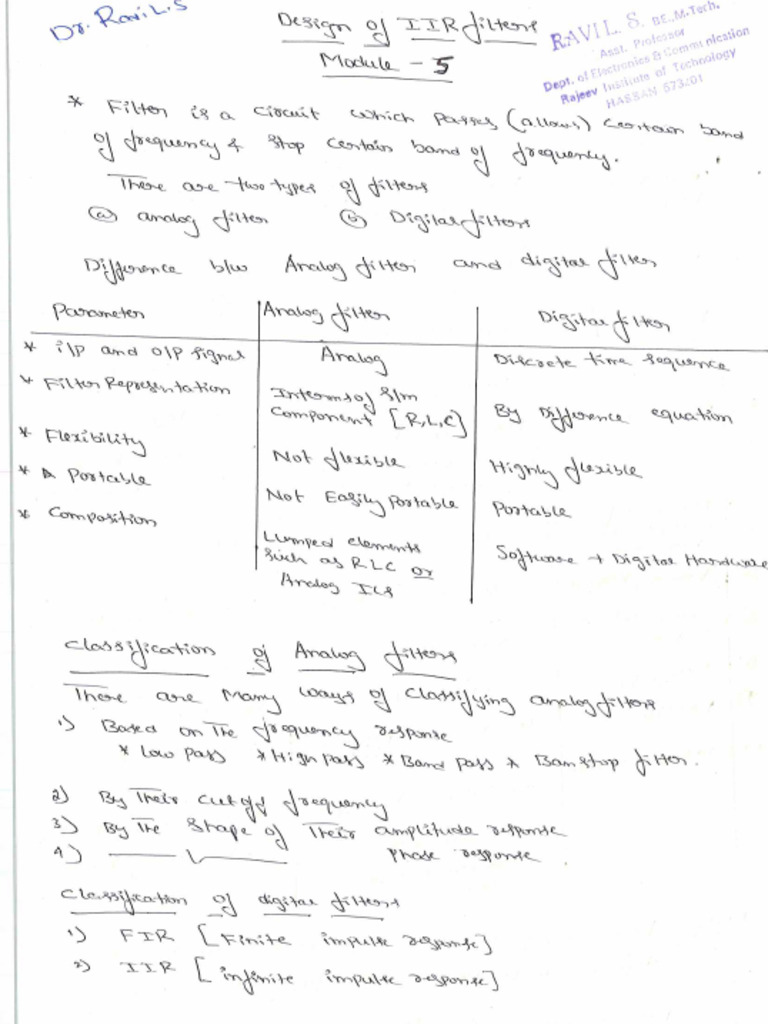 Dr. Ravi.L.S
Design of IIR filters
Module - 5
RAVI L. S. BE.,M.Tech.
Asst. Professor
Dept. of Electronics & Communication
Rajeev Institute of Technology
HASSAN 573201
* Filter is a circuit which passes (allows) certain band
of frequency & stop certain band of frequency.
There are two types of filters
(a) analog filter (b) Digital filters
Difference b/w Analog filter and digital filter
Parameter Analog filter Digital filter
* i/p and o/p signal Analog Discrete time sequence
* Filter Representation Interms of s/m
Component [R,L,C] By Difference equation
* Flexibility Not flexible Highly flexible
* Portable Not Easily portable Portable
* Composition Lumped elements
such as RLC or
Analog ICs Software + Digital Hardware
Classification of Analog filters
There are Many ways of classifying analog filters
1) Based on The frequency response
* Low pass * High pass * Band pass * Banstop filter.
2) By Their cut off frequency
3) By The Shape of Their amplitude response
4) phase response
Classification of digital filters
1) FIR [Finite impulse response]
2) IIR [infinite impulse response]